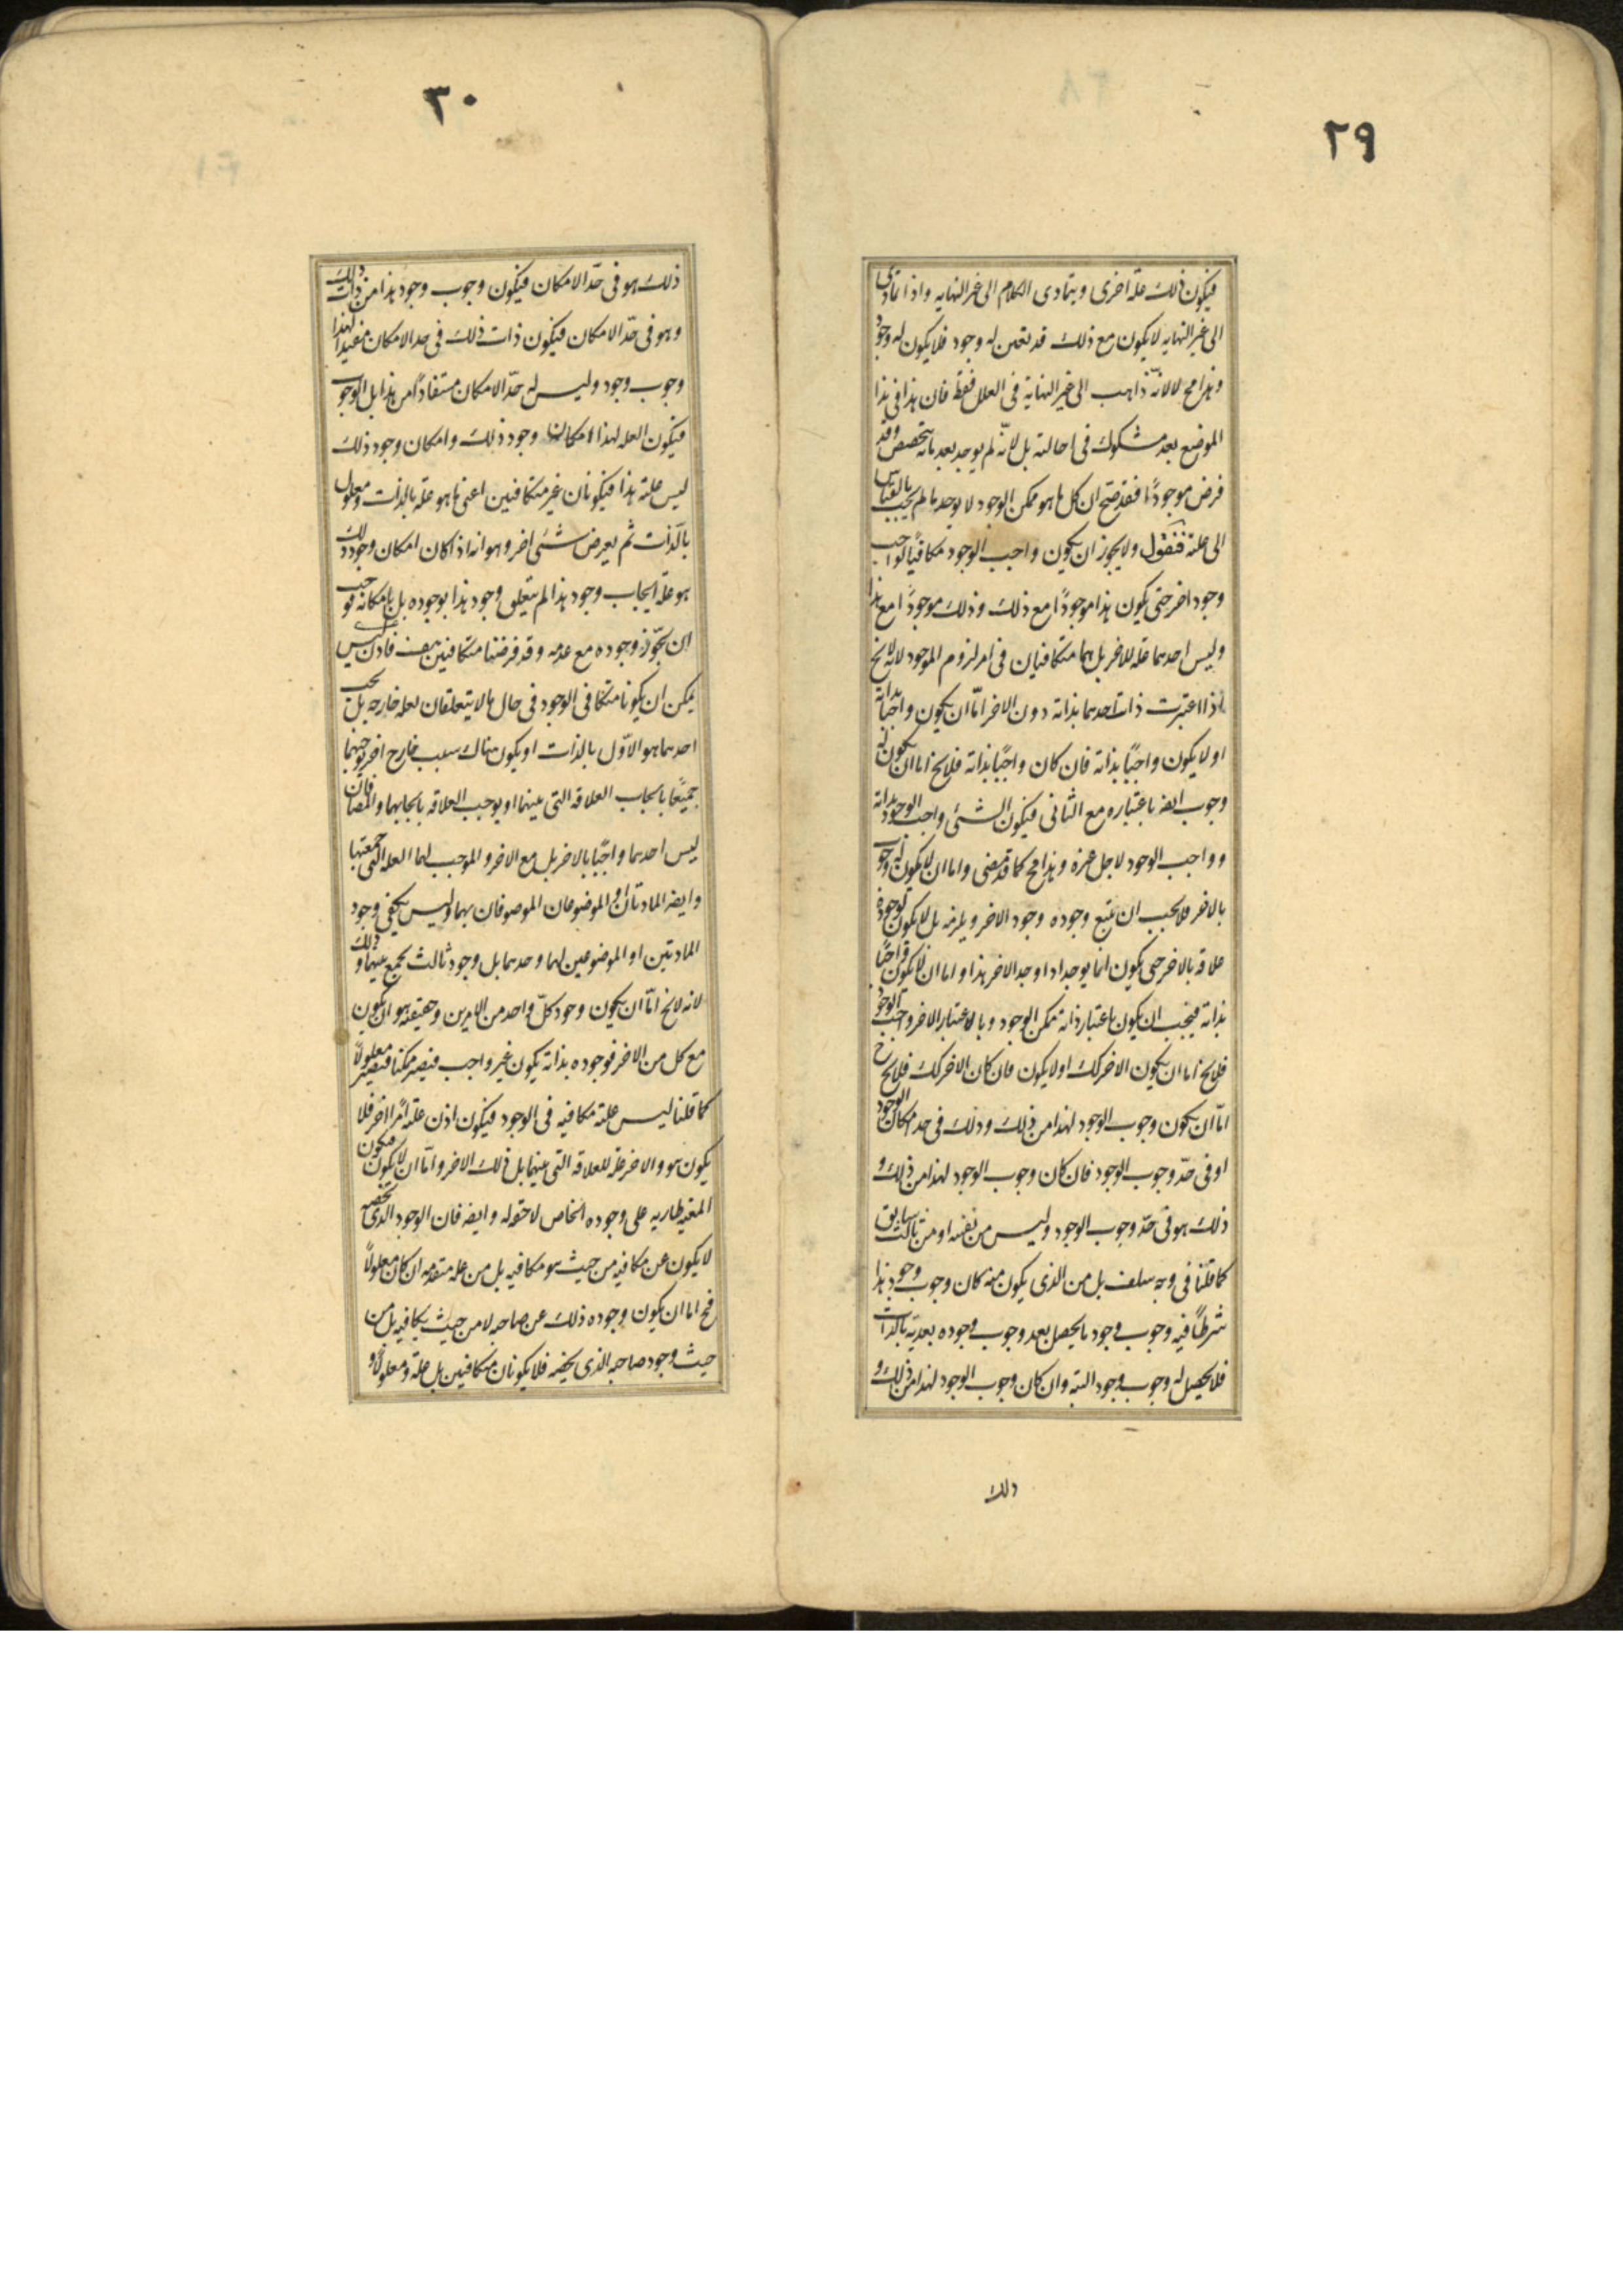 ٢٩
فيكون لذلك علة اخرى ويتمادى الكلام الى غير النهايه واذا تمادى
الى غير النهايه لايكون مع ذلك قد تعين له وجود فلايكون له وجود
وهذا مح لا لانه ذاهب الى غير النهاية فى العلل فقط فان هذا فى هذا
الموضع بعد مشكوك فى احالته بل لانه لم يوجد بعد ما به يتخصص وقد
فرض موجودًا فقد صح ان كل ما هو ممكن الوجود لا يوجد ما لم يجب بالقياس
الى علته فنقول ولايجوز ان يكون واجب الوجود مكافيًا لواجب
وجود اخر حتى يكون هذا موجودًا مع ذلك وذلك موجودًا مع هذا
وليس احدهما علة للاخر بل هما متكافيان فى امر لزوم الوجود لانه لايخ
اذا اعتبرت ذات احدهما بذاته دون الاخر امّا ان يكون واجبًا بذاته
او لايكون واجبًا بذاته فان كان واجبًا بذاته فلايخ اما ان يكون له
وجوب ايضه باعتباره مع الثانى فيكون الشئ واجب الوجود بذاته
وواجب الوجود لاجل غيره وهذا مح كما قد مضى واما ان لايكون له وجوب
بالاخر فلايجب ان يتبع وجوده وجود الاخر ويلزمه بل لايكون لوجوده
علاقه بالاخر حتى يكون انما يوجد اذا وجد الاخر هذا واما ان لايكون واجبًا
بذاته فيجب ان يكون باعتبار ذاته ممكن الوجود وبالاعتبار الاخر واجب الوجود
فلايخ اما ان يكون الاخر كك او لايكون فان كان الاخر كك فلايخ ح
امّا ان يكون وجوب الوجود لهذا من ذلك وذلك فى حد امكان الوجود
او فى حدّ وجوب الوجود فان كان وجوب الوجود لهذا من ذلك و
ذلك هو فى حدّ وجوب الوجود وليس من نفسه او من ثالث سابق
كما قلنا فى وجه سلف بل من الذى يكون منه كان وجوب وجود هذا
شرطًا فيه وجوب وجود ما يحصل بعد وجوب وجوده بعديّه بالذات
فلايحصل له وجوب وجود البته وان كان وجوب الوجود لهذا من ذلك و
ذلك
٣٠
ذلك هو فى حدّ الامكان فيكون وجوب وجود هذا من ذات ذلك
وهو فى حدّ الامكان فيكون ذات ذلك فى حد الامكان مفيدا لهذا
وجوب وجود وليس له حدّ الامكان مستفادًا من هذا بل الوجوب
فيكون العله لهذا امكان وجود ذلك وامكان وجود ذلك
ليس علته هذا فيكونان غير متكافيين اعنى ما هو علة بالذات ومعلول
بالذات ثم يعرض شئ اخر وهو انه اذا كان امكان وجود ذلك
هو علة ايجاب وجود هذا لم يتعلق وجود هذا بوجوده بل بامكانه فوجب
ان يجوّز وجوده مع عدمه وقد فرضنا متكافيين هف فاذن ليس
يمكن ان يكونا متكافى الوجود فى حال ما لا يتعلقان بعلة خارجه بل يجب
احدهما هو الاوّل بالذات او يكون هناك سبب خارج اخر يوجبهما
جميعًا بايجاب العلاقه التى بينهما او يوجب العلاقه بايجابهما والمضافان
ليس احدهما واجبًا بالاخر بل مع الاخر والموجب لهما العله التى جمعتهما
وايضه المادتان او الموضوعان الموصوفان بهما وليس يكفى وجود
المادتين او الموضوعين لهما وحدهما بل وجود ثالث يجمع بينهما وذلك
لانه لايخ امّا ان يكون وجود كلّ واحد من الامرين وحقيقته هو ان يكون
مع كل من الاخر فوجوده بذاته يكون غير واجب فيصير ممكنا فيصير معلولًا
كما قلنا ليس علته مكافيه فى الوجود فيكون اذن علته امرًا اخر فلا
يكون هو والاخر علة للعلاقه التى بينهما بل ذلك الاخر وامّا ان لايكون فيكون
المعيه طاريه على وجوده الخاص لاحقه له وايضه فان الوجود الذى يخصه
لايكون عن مكافيه من حيث هو مكافيه بل من علة متقدمه ان كان معلولًا
فح اما ان يكون وجوده ذلك عن صاحبه لا من حيث يكافيه بل من
حيث وجود صاحبه الذى يخصه فلا يكونان متكافيين بل علة ومعلولًا و